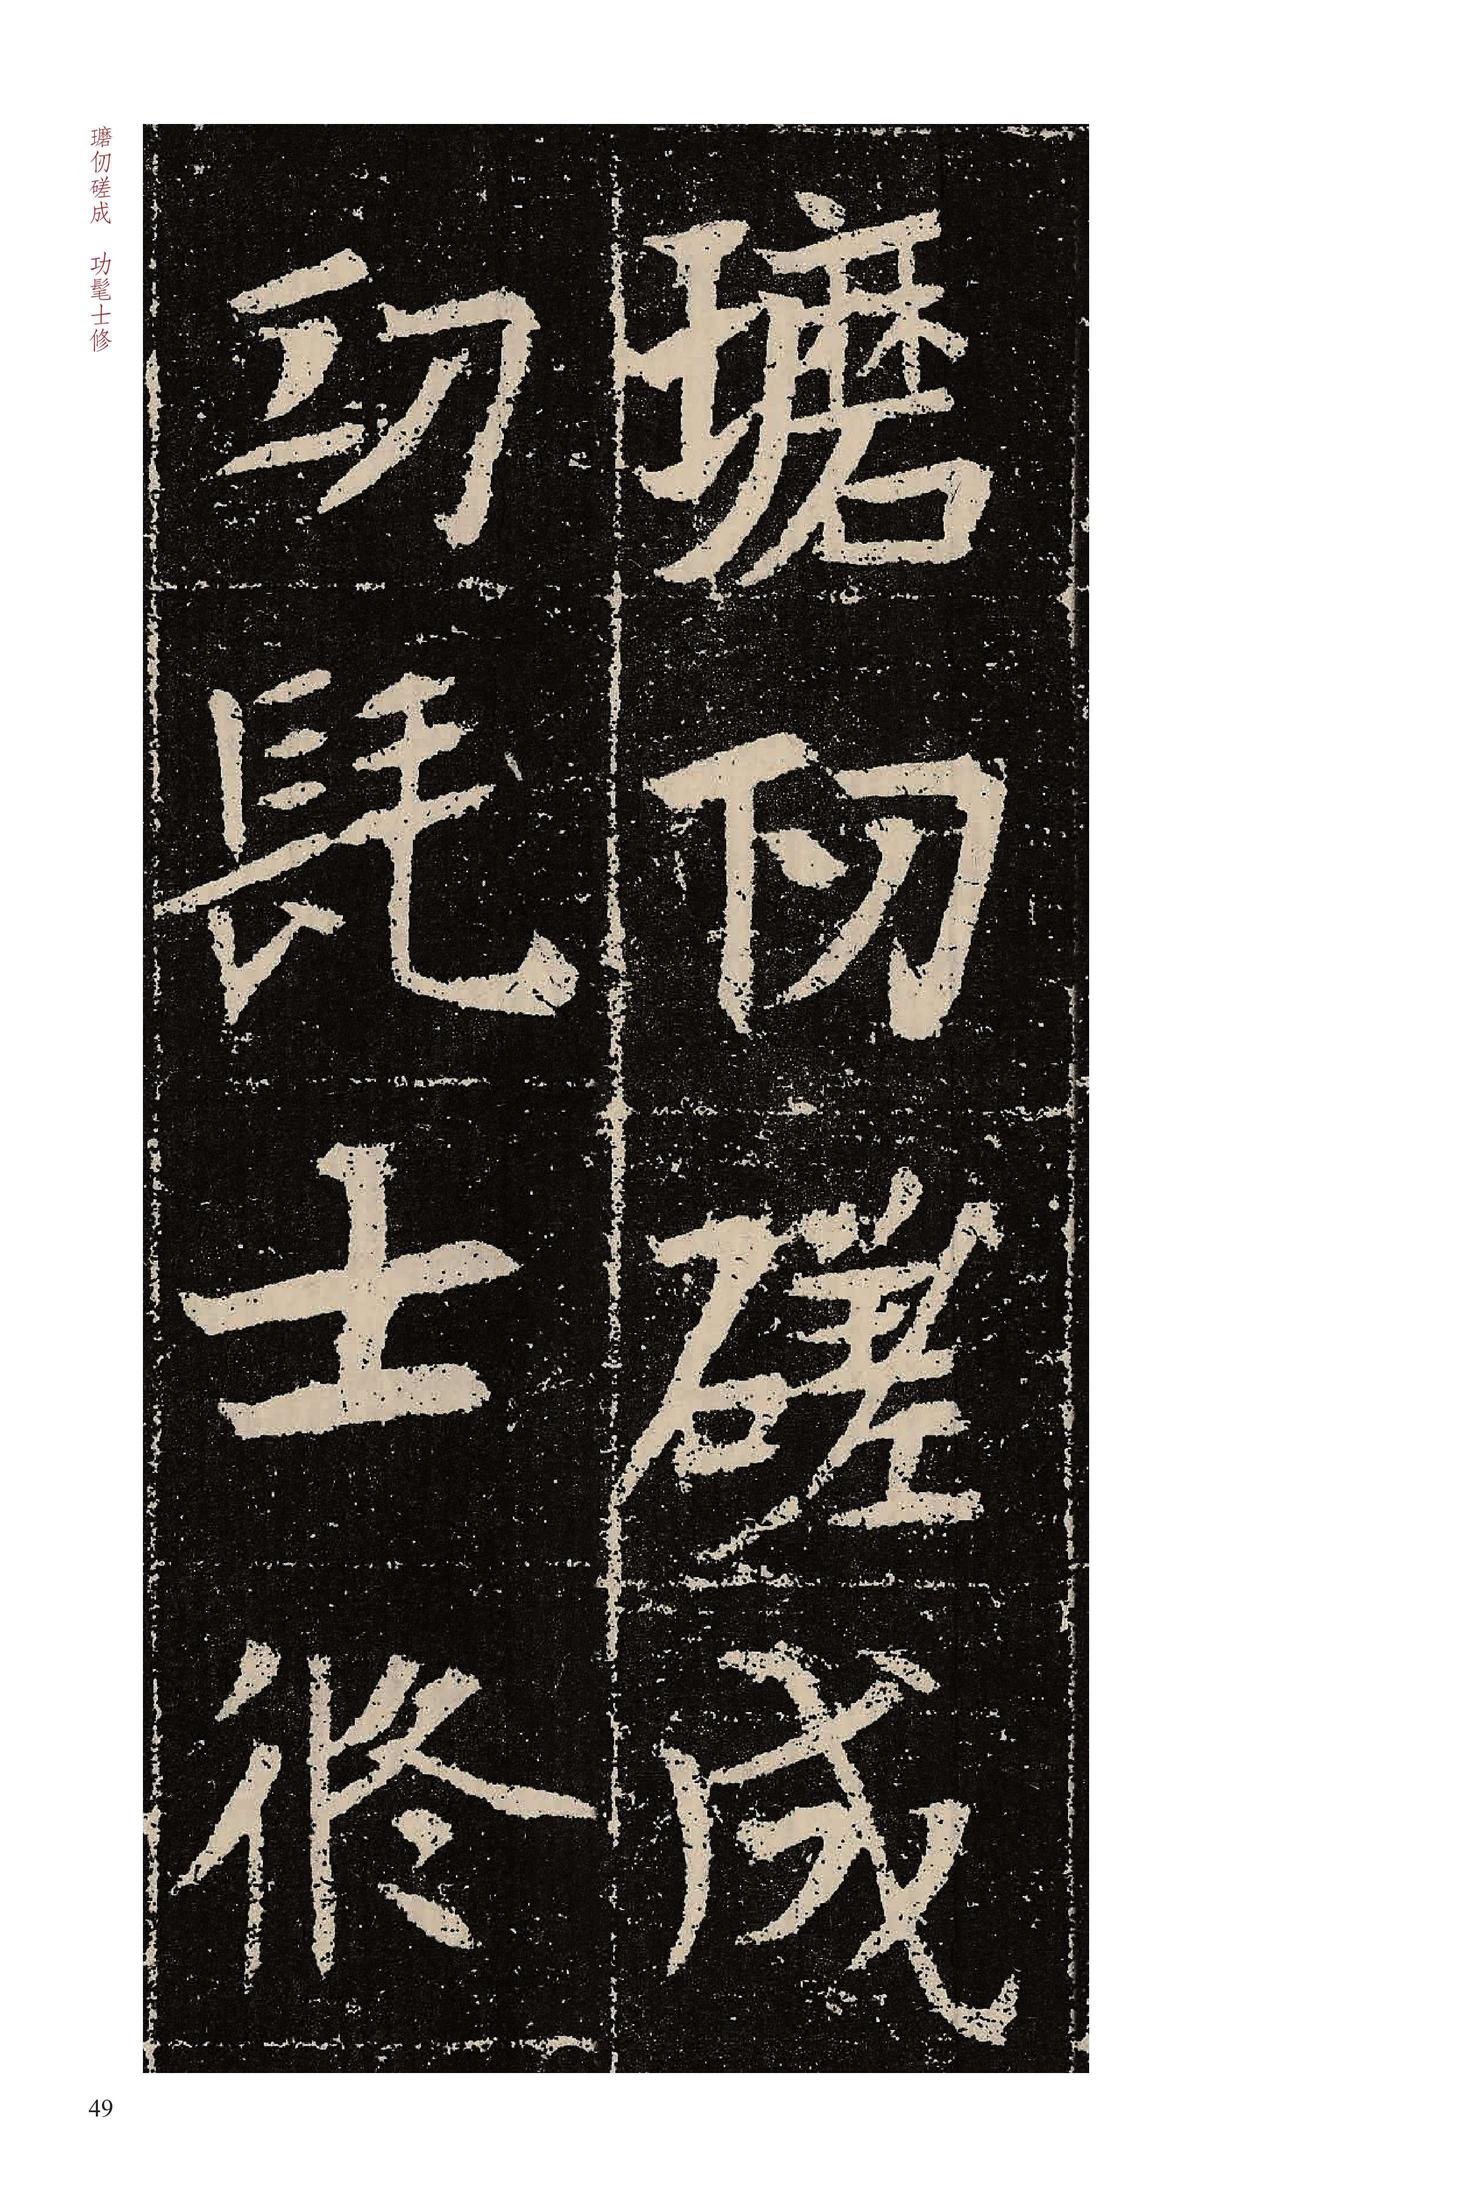 㼁仞磋成
功髦士修
瓋仞磋成　功髦士修
49